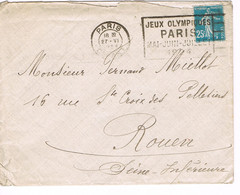 PARIS
JEUX OLYMPIQUES
PARIS
MAI-JUIN-JUILLET
1924
25
Monsieur Fernand Miellot
16 rue Ste Croix des Pelletiers
Rouen
Seine-Inférieure